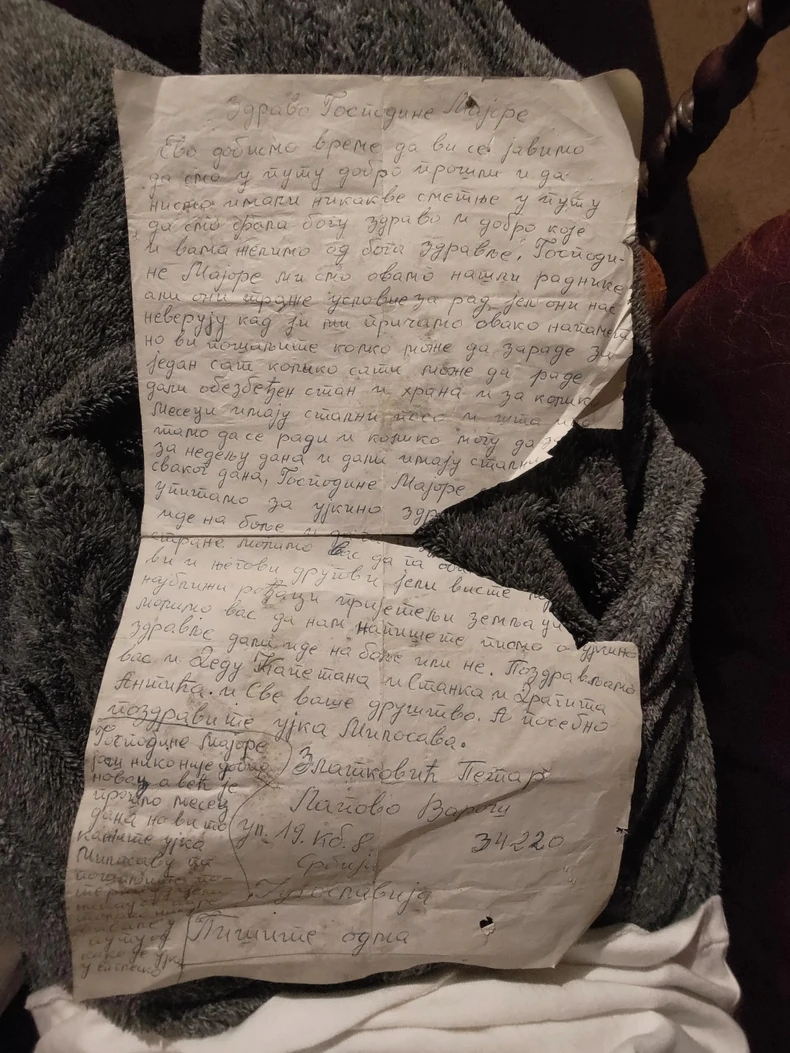 Здраво Господине Мајоре
Ево добисмо време да ви се јавимо
да смо у путу добро прошли и да
нисмо имали никакве сметње у путу
да смо фала богу здраво и добро које
и вама желимо од бога здравље, Господи-
не Мајоре ми смо овамо нашли раднике
али они траже услове за рад јел они нас
неверују кад ји ми причамо овако напамет
но ви пошаљите колко може да зараде за
један сат колико сати може да раде
дали обезбеђен стан и храна и за колико
месеци имају стални посо и шта
тамо да се ради и колико могу да
за недељу дана и дали имају стални
сваког дана, Господине Мајоре
упитамо за ујкино
иде на боље и
стране молимо вас да га
ви и његови другови јели висте
најближи рођаци пријетељи земљаци
молимо вас да нам напишете писмо о ујкино
здравље дали иде на боље или не. Поздрављамо
вас и Деду Капетана и Станка и Драгита
Антића. и Све ваше друштво. А посебно
поздравите ујка Милосава.
Господине Мајоре
нико није добио
новац а већ је
прошло месец
дана но ви то
кажите ујка
Милосаву да
Златковић Петар
Лапово Варош
ул. 19. Кб. 8. 34220
Србија
Југославија
Пишите одма